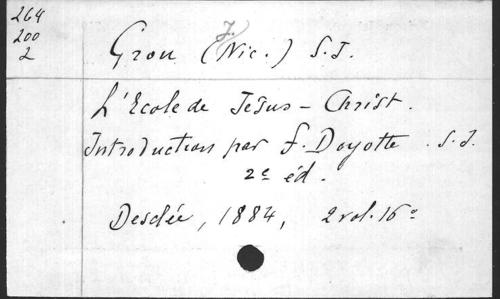 264
200
2
Grou (J. Nic.) S.J.
L'Ecole de Jésus-Christ.
Introduction par F. Doyotte. S.J.
2e éd.
Desclée, 1884, 2 vol. 16°